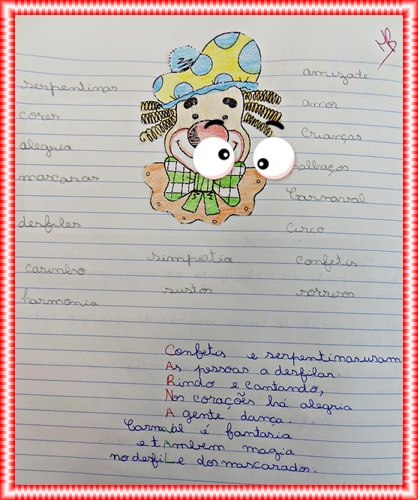 MB
serpentinas
cores
alegria
mascaras
desfiles
carinho
harmonia
simpatia
sustos
amizade
amor
Crianças
alhaços
Carnaval
Circo
Confetis
sorrisos
Confetis e serpentinas usam
As pessoas a desfilar
Rindo e cantando,
Nos corações há alegria
A gente dança.
Carnaval é fantasia
e tAmbem magia
no desfiLe dos mascarados.